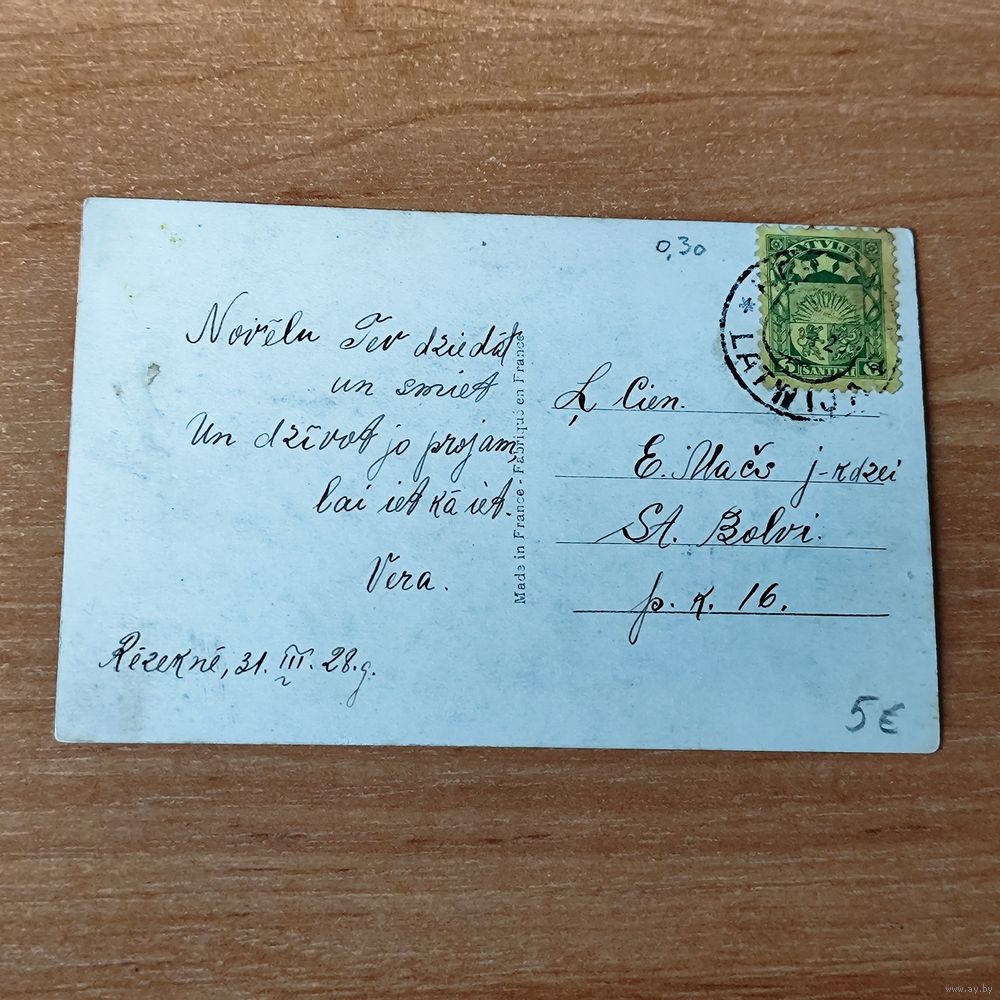 0,30
LATVIJA
5 SANTIMI
Novēlu Tev dziedāt
un smiet
Un dzīvot jo projām,
lai iet kā iet.
Vera.
Rēzeknē, 31. III. 28.g.
Made in France - Fabriqué en France
Ļ. Cien.
E. Mačs j-kdzei
St. Bolvi.
p. k. 16.
5€
www.ay.by